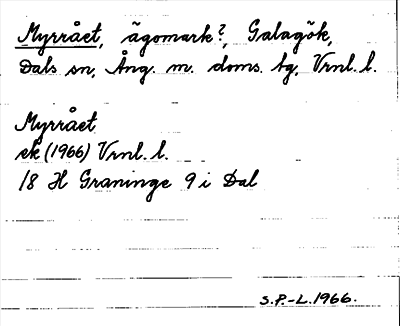 Myrrået, ägomark?, Galagök,
Dals sn, Ång. m. doms. tg, Vrnl. l.
Myrrået
ek (1966) Vrnl. l.
18 H Graninge 9 i Dal
S.P.-L. 1966.